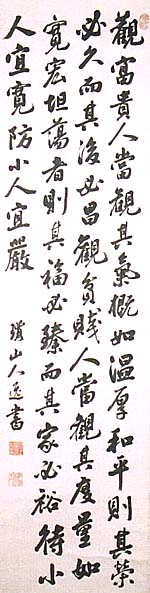 觀富貴人當觀其氣概如温厚和平則其榮
必久而其後必昌觀貧賤人當觀其度量如
寬宏坦蕩者則其福必臻而其家必裕待小
人宜寬防小人宜嚴
山人逸書